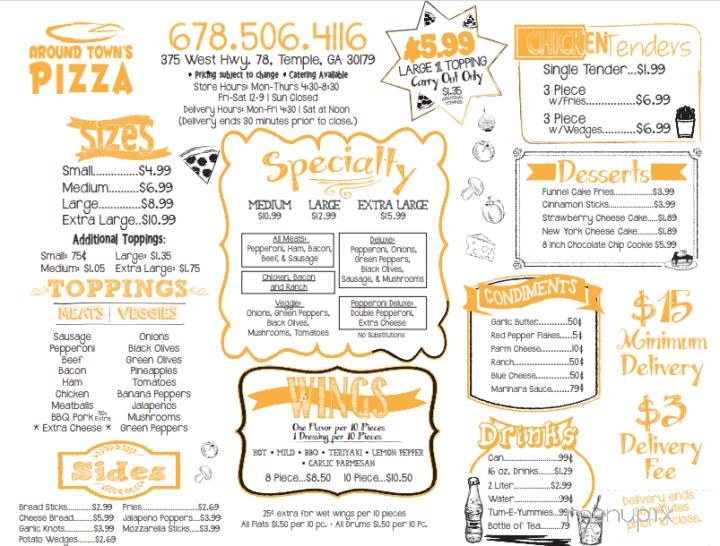 AROUND TOWN'S
PIZZA
678.506.4116
375 West Hwy. 78, Temple, GA 30179
• Pricing subject to change • Catering Available
Store Hours: Mon-Thurs 4:30-8:30
Fri-Sat 12-9 | Sun Closed
Delivery Hours: Mon-Fri 4:30 | Sat at Noon
(Delivery ends 30 minutes prior to close.)
$5.99
LARGE 1 TOPPING
Carry Out Only
$1.35
ADDITIONAL
TOPPINGS
CHICKEN Tenders
Single Tender...$1.99
3 Piece
w/Fries..........$6.99
3 Piece
w/Wedges........$6.99
SIZES
Small..............$4.99
Medium..........$6.99
Large.............$8.99
Extra Large..$10.99
Additional Toppings:
Small: 75¢ Large: $1.35
Medium: $1.05 Extra Large: $1.75
TOPPINGS
MEATS | VEGGIES
Sausage Onions
Pepperoni Black Olives
Beef Green Olives
Bacon Pineapples
Ham Tomatoes
Chicken Banana Peppers
Meatballs Jalapenos
BBQ Pork 50¢ Extra Mushrooms
* Extra Cheese * Green Peppers
Sides
Bread Sticks........$2.99 Fries..................$2.69
Cheese Bread......$5.99 Jalapeno Poppers...$3.99
Garlic Knots.........$3.99 Mozzarella Sticks....$3.99
Potato Wedges....$2.69
Specialty
MEDIUM LARGE EXTRA LARGE
$10.99 $12.99 $15.99
All Meats:
Pepperoni, Ham, Bacon,
Beef, & Sausage
Deluxe:
Pepperoni, Onions,
Green Peppers,
Black Olives,
Sausage, & Mushrooms
Chicken, Bacon
and Ranch
Veggie:
Onions, Green Peppers,
Black Olives,
Mushrooms, Tomatoes
Pepperoni Deluxe:
Double Pepperoni,
Extra Cheese
No Substitutions
WINGS
One Flavor per 10 Pieces
1 Dressing per 10 Pieces
HOT • MILD • BBQ • TERIYAKI • LEMON PEPPER
• GARLIC PARMESAN
8 Piece...$8.50 10 Piece...$10.50
25¢ extra for wet wings per 10 pieces
All Flats $1.50 per 10 pc. • All Drums $1.50 per 10 Pc.
Desserts
Funnel Cake Fries................$3.99
Cinnamon Sticks...................$3.99
Strawberry Cheese Cake.....$1.89
New York Cheese Cake.......$1.89
8 Inch Chocolate Chip Cookie $5.99
CONDIMENTS
Garlic Butter............50¢
Red Pepper Flakes.....5¢
Parm Cheese...........10¢
Ranch.....................50¢
Blue Cheese............50¢
Marinara Sauce.......79¢
$15
Minimum
Delivery
$3
Delivery
Fee
Delivery ends
30 minutes
prior to close.
Drinks
Can.....................99¢
16 oz. Drinks.......$1.29
2 Liter...............$2.99
Water.................99¢
Tum-E-Yummies...99¢
Bottle of Tea........79
menupix